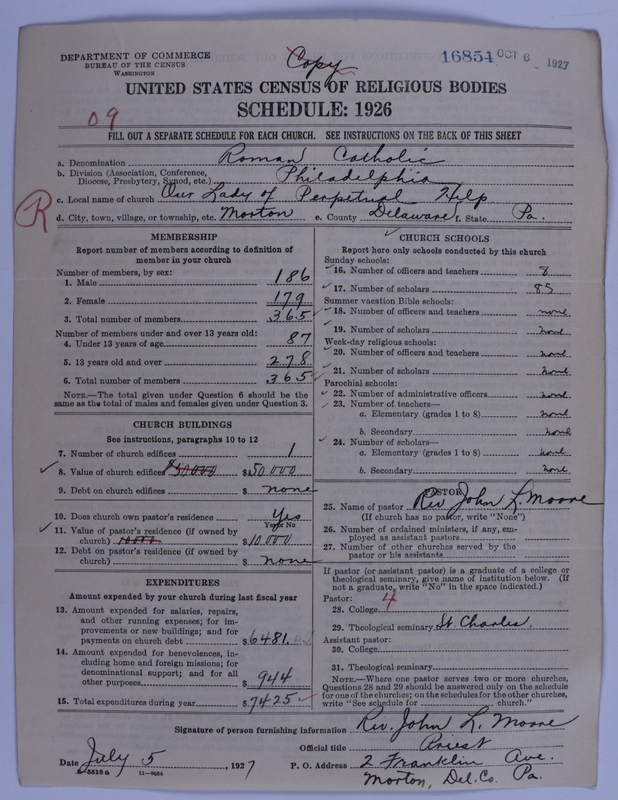 DEPARTMENT OF COMMERCE
BUREAU OF THE CENSUS
WASHINGTON
Copy
16854 OCT 6 1927
UNITED STATES CENSUS OF RELIGIOUS BODIES
SCHEDULE: 1926
09
FILL OUT A SEPARATE SCHEDULE FOR EACH CHURCH. SEE INSTRUCTIONS ON THE BACK OF THIS SHEET
a. Denomination Roman Catholic
b. Division (Association, Conference, Diocese, Presbytery, Synod, etc.) Philadelphia
R
c. Local name of church Our Lady of Perpetual Help
d. City, town, village, or township, etc. Morton e. County Delaware f. State Pa.
MEMBERSHIP
Report number of members according to definition of
member in your church
Number of members, by sex:
1. Male 186
2. Female 179
3. Total number of members 365
Number of members under and over 13 years old:
4. Under 13 years of age 87
5. 13 years old and over 278
6. Total number of members 365
NOTE.—The total given under Question 6 should be the
same as the total of males and females given under Question 3.
CHURCH BUILDINGS
See instructions, paragraphs 10 to 12
7. Number of church edifices 1
8. Value of church edifices $50000 $50.000
9. Debt on church edifices $ none
10. Does church own pastor's residence Yes
Yes or No
11. Value of pastor's residence (if owned by
church) 10000 $10.000
12. Debt on pastor's residence (if owned by
church) $ none
EXPENDITURES
Amount expended by your church during last fiscal year
13. Amount expended for salaries, repairs,
and other running expenses; for im-
provements or new buildings; and for
payments on church debt $6481.
14. Amount expended for benevolences, in-
cluding home and foreign missions; for
denominational support; and for all
other purposes $ 944
15. Total expenditures during year $7425
CHURCH SCHOOLS
Report here only schools conducted by this church
Sunday schools:
16. Number of officers and teachers 8
17. Number of scholars 85
Summer vacation Bible schools:
18. Number of officers and teachers none
19. Number of scholars none
Week-day religious schools:
20. Number of officers and teachers none
21. Number of scholars none
Parochial schools:
22. Number of administrative officers none
23. Number of teachers—
a. Elementary (grades 1 to 8) none
b. Secondary none
24. Number of scholars—
a. Elementary (grades 1 to 8) none
b. Secondary none
PASTOR
25. Name of pastor Rev John L. Moore
(If church has no pastor, write "None")
26. Number of ordained ministers, if any, em-
ployed as assistant pastors
27. Number of other churches served by the
pastor or his assistants
If pastor (or assistant pastor) is a graduate of a college or
theological seminary, give name of institution below. (If
not a graduate, write "No" in the space indicated.)
Pastor:
28. College 4
29. Theological seminary St Charles.
Assistant pastor:
30. College
31. Theological seminary
NOTE.—Where one pastor serves two or more churches,
Questions 28 and 29 should be answered only on the schedule
for one of the churches; on the schedules for the other churches,
write "See schedule for church."
Signature of person furnishing information Rev. John L. Moore
Official title Priest
Date July 5, 1927 P. O. Address 2 Franklin Ave.
8-5518a 11-9034
Morton, Del. Co. Pa.